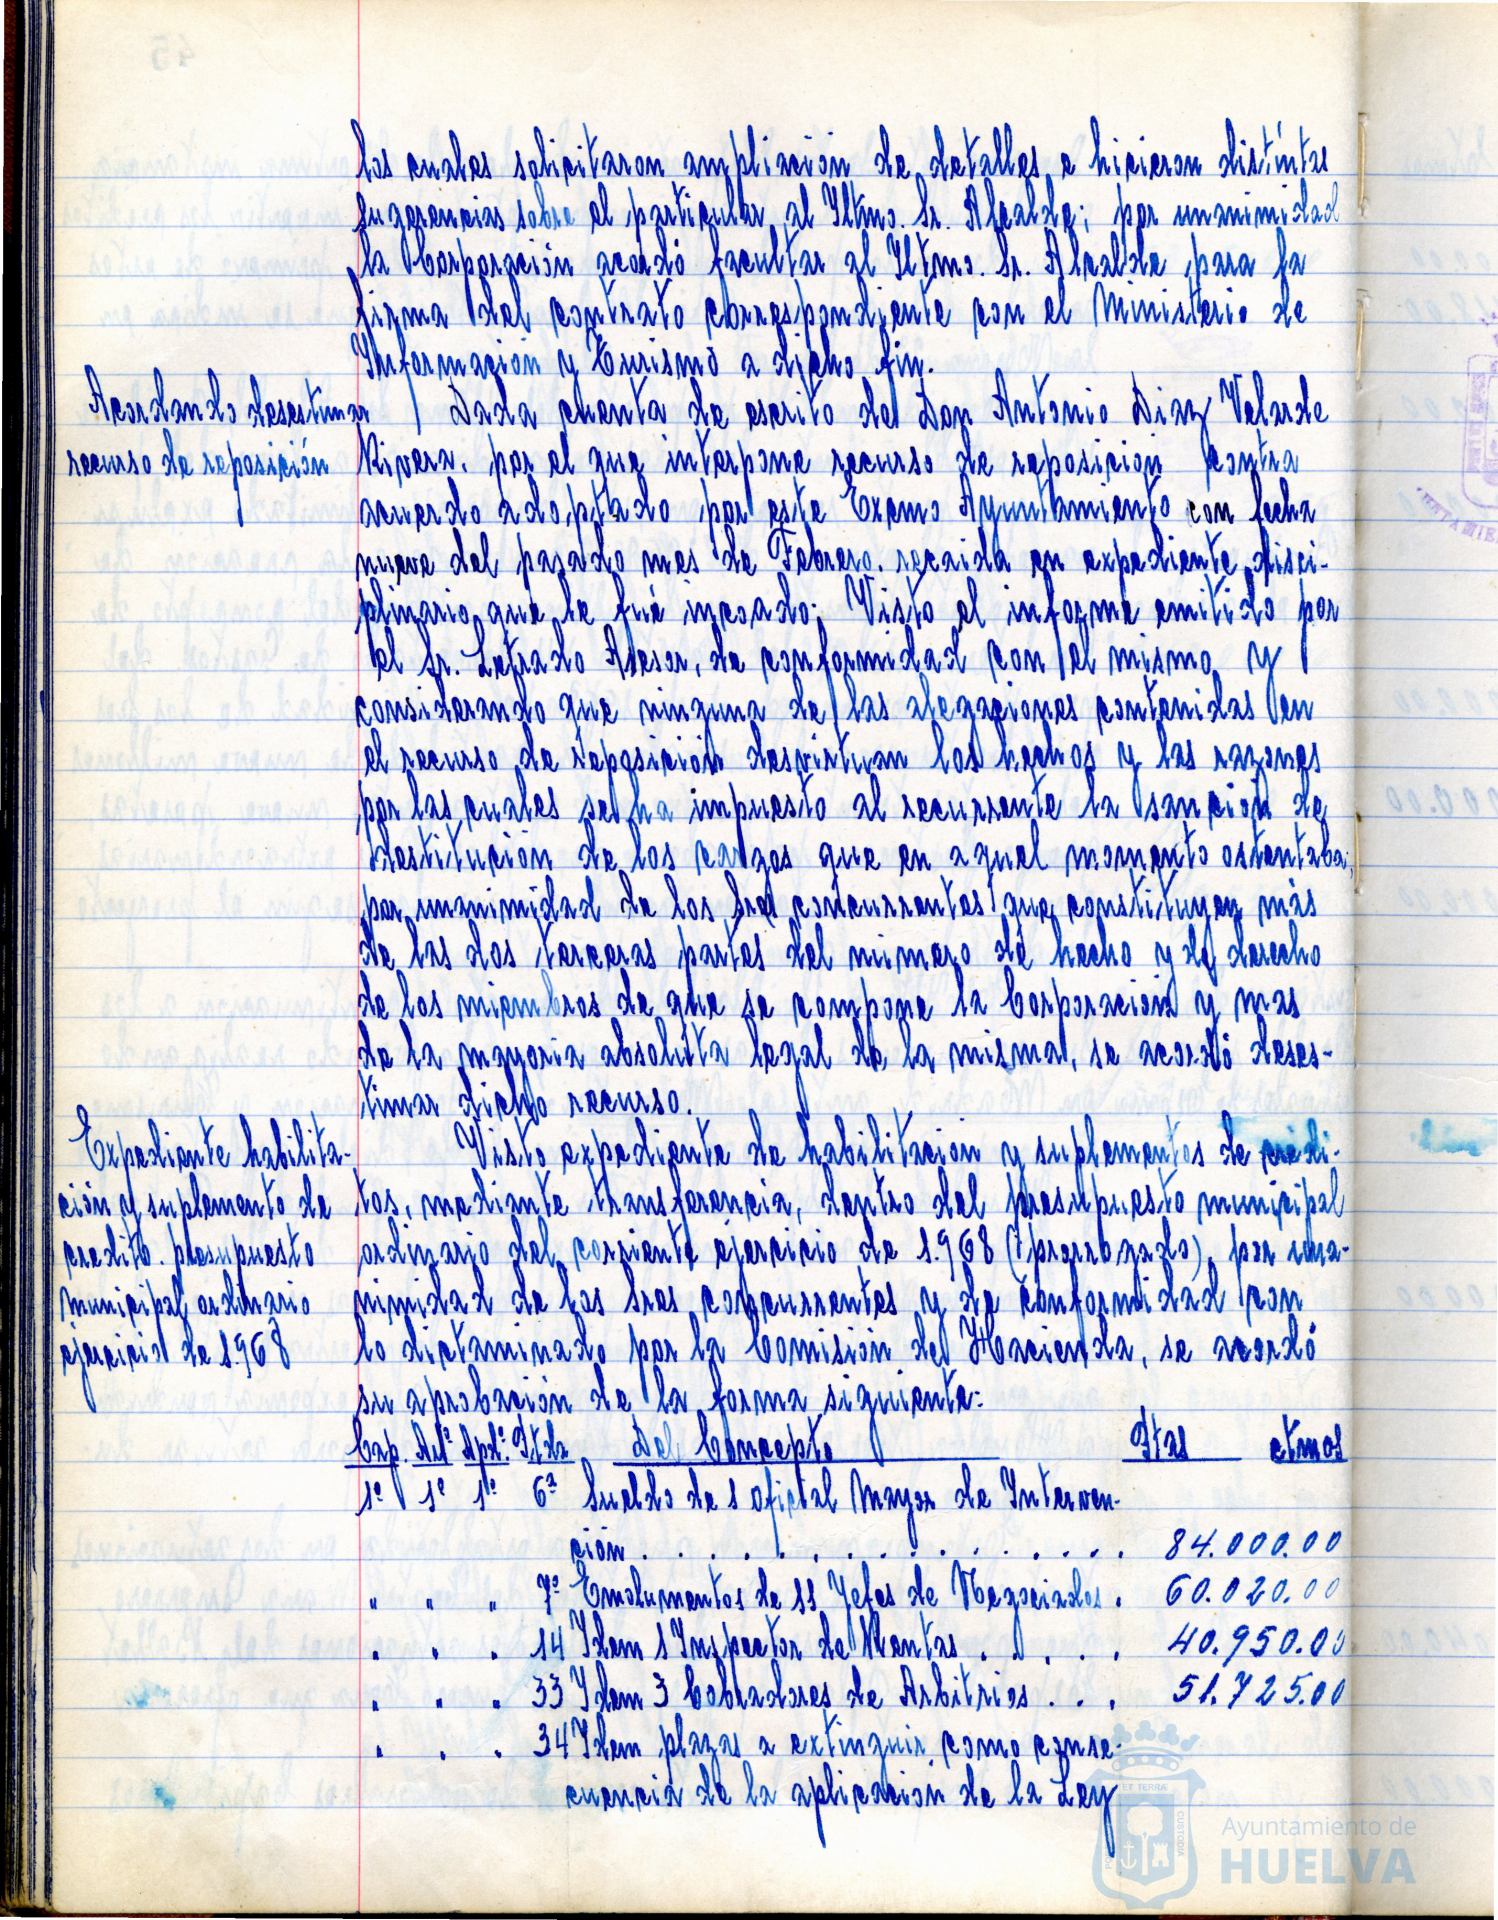 los cuales solicitaron ampliación de detalles e hicieron distintas
sugerencias sobre el particular al Iltmo. Sr. Alcalde; por unanimidad
la Corporación acordó facultar al Iltmo. Sr. Alcalde, para la
firma del contrato correspondiente con el Ministerio de
Información y Turismo a dicho fin.
Acordando desestimar
recurso de reposición
Dada cuenta de escrito de Don Antonio Diaz Velarde
Rivera, por el que interpone recurso de reposición contra
acuerdo adoptado por este Excmo Ayuntamiento con fecha
nueve del pasado mes de Febrero, recaida en expediente disci-
plinario que le fué incoado; Visto el informe emitido por
el Sr. Letrado Asesor, de conformidad con el mismo y
considerando que ninguna de las alegaciones contenidas en
el recurso de reposición desvirtuan los hechos y las razones
por las cuales se ha impuesto al recurrente la sanción de
destitución de los cargos que en aquel momento ostentaba;
por unanimidad de los Sres concurrentes que constituyen más
de las dos terceras partes del número de hecho y de derecho
de los miembros de que se compone la Corporación y mas
de la mayoria absoluta legal de la misma, se acordó deses-
timar dicho recurso.
Expediente habilita-
ción y suplemento de
credito. presupuesto
municipal ordinario
ejercicio de 1968
Visto expediente de habilitación y suplementos de crédi-
tos, mediante transferencia, dentro del presupuesto municipal
ordinario del corriente ejercicio de 1.968 (prorrogado), por una-
nimidad de los Sres concurrentes y de conformidad con
lo dictaminado por la Comisión de Hacienda, se acordó
su aprobación de la forma siguiente:
Cap. Artº Apdº Ptda Del Concepto Ptas ctmos
1º 1º 1º 6ª Sueldo de 1 oficial Mayor de Interven-
ción . . . . . . . . . . . . . . . 84.000.00
" " " 7ª Emolumentos de 11 Jefes de Negociados . 60.020.00
" " " 14 Idem 1 Inspector de Rentas . . . . . 40.950.00
" " " 33 Idem 3 Cobradores de Arbitrios . . . 51.725.00
" " " 34 Idem plazas a extinguir como conse-
cuencia de la aplicación de la Ley
Ayuntamiento de
HUELVA